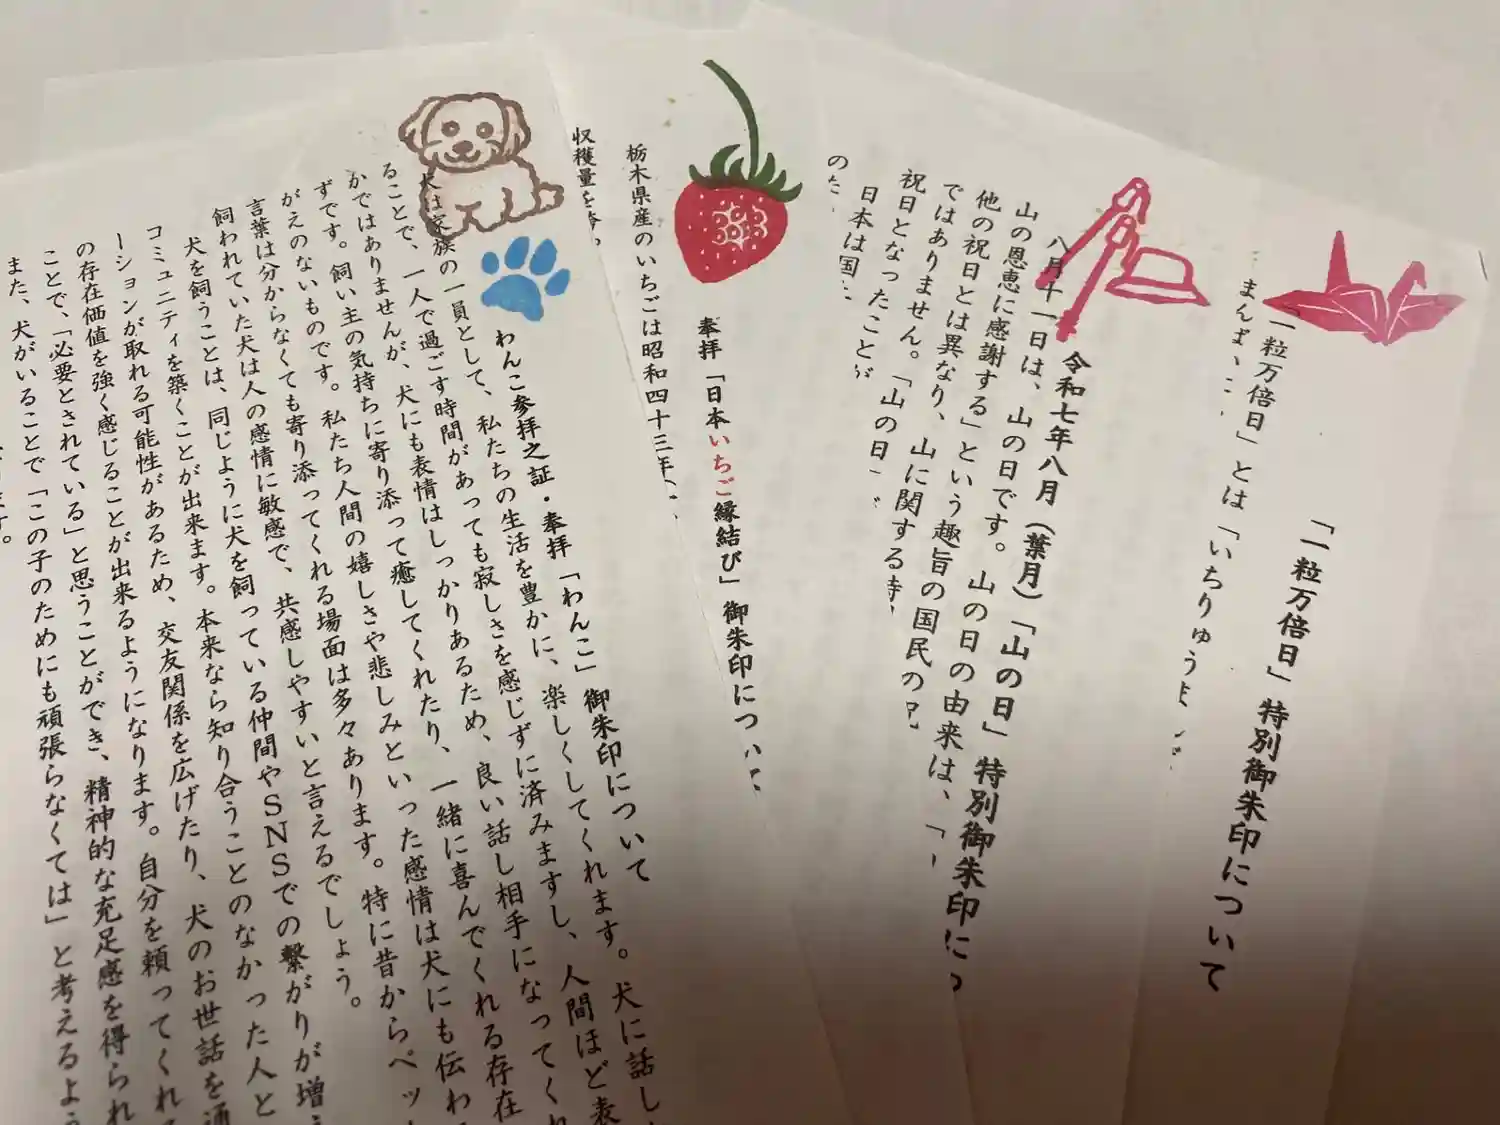 「一粒万倍日」特別御朱印について
「一粒万倍日」とは「いちりゅう
まんば
令和七年八月（葉月）「山の日」特別御朱印につ
八月十一日は、山の日です。山の日の由来は、「
山の恩恵に感謝する」という趣旨の国民の祝
他の祝日とは異なり、山に関する特
ではありません。「山の日」が
祝日となったことが
日本は国
のた
奉拝「日本いちご縁結び」御朱印について
栃木県産のいちごは昭和四十三年
収穫量を誇
わんこ参拝之証・奉拝「わんこ」御朱印について
犬は家族の一員として、私たちの生活を豊かに、楽しくしてくれます。犬に話し
ることで、一人で過ごす時間があっても寂しさを感じずに済みますし、人間ほど表
かではありませんが、犬にも表情はしっかりあるため、良い話し相手になってくれ
ずです。飼い主の気持ちに寄り添って癒してくれたり、一緒に喜んでくれる存在
がえのないものです。私たち人間の嬉しさや悲しみといった感情は犬にも伝わ
言葉は分からなくても寄り添ってくれる場面は多々あります。特に昔からペッ
飼われていた犬は人の感情に敏感で、共感しやすいと言えるでしょう。
犬を飼うことは、同じように犬を飼っている仲間やSNSでの繋がりが増
コミュニティを築くことが出来ます。本来なら知り合うことのなかった人と
ーションが取れる可能性があるため、交友関係を広げたり、犬のお世話を通
の存在価値を強く感じることが出来るようになります。自分を頼ってくれ
ことで、「必要とされている」と思うことができ、精神的な充足感を得られ
また、犬がいることで「この子のためにも頑張らなくては」と考えるよう
ます。